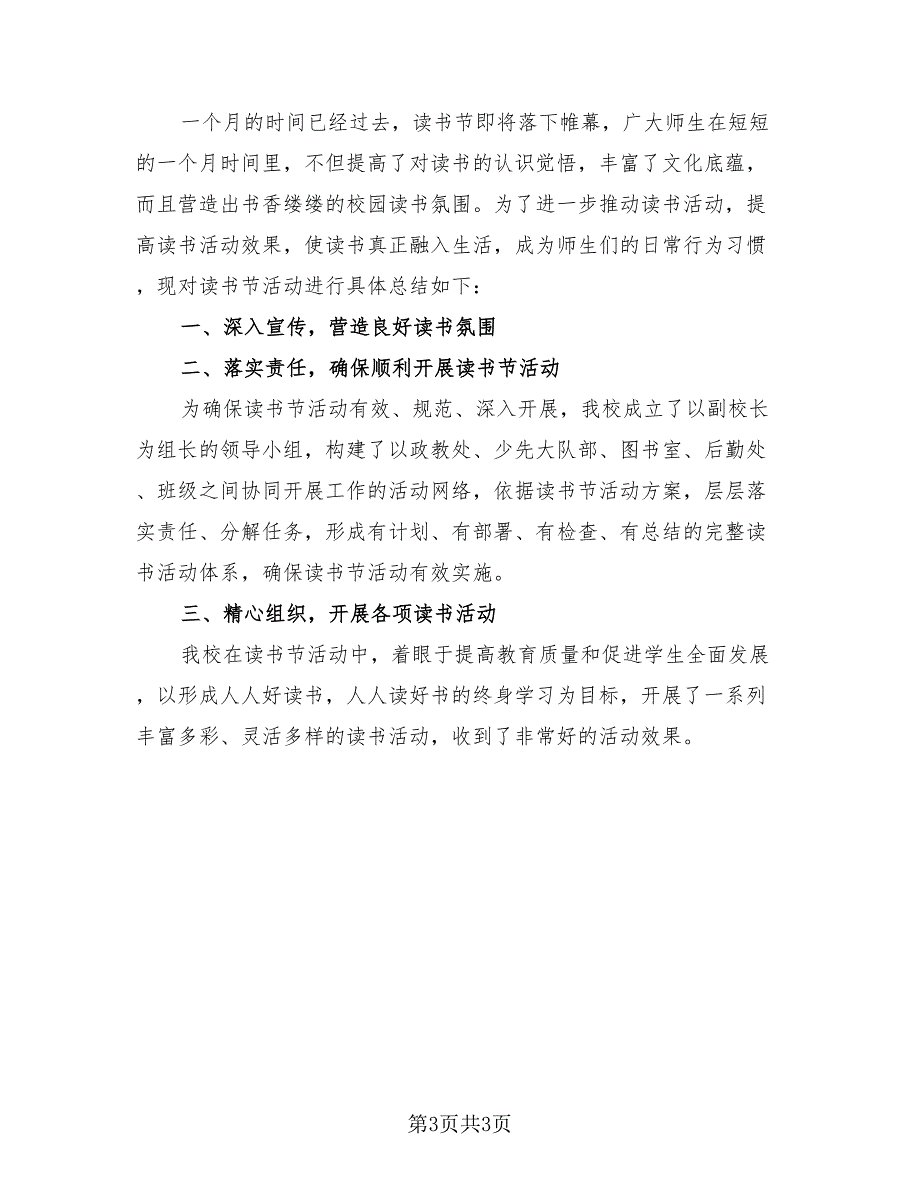 一个月的时间已经过去，读书节即将落下帷幕，广大师生在短短
的一个月时间里，不但提高了对读书的认识觉悟，丰富了文化底蕴，
而且营造出书香缕缕的校园读书氛围。为了进一步推动读书活动，提
高读书活动效果，使读书真正融入生活，成为师生们的日常行为习惯
，现对读书节活动进行具体总结如下：
一、深入宣传，营造良好读书氛围
二、落实责任，确保顺利开展读书节活动
为确保读书节活动有效、规范、深入开展，我校成立了以副校长
为组长的领导小组，构建了以政教处、少先大队部、图书室、后勤处
、班级之间协同开展工作的活动网络，依据读书节活动方案，层层落
实责任、分解任务，形成有计划、有部署、有检查、有总结的完整读
书活动体系，确保读书节活动有效实施。
三、精心组织，开展各项读书活动
我校在读书节活动中，着眼于提高教育质量和促进学生全面发展
，以形成人人好读书，人人读好书的终身学习为目标，开展了一系列
丰富多彩、灵活多样的读书活动，收到了非常好的活动效果。
第3页共3页